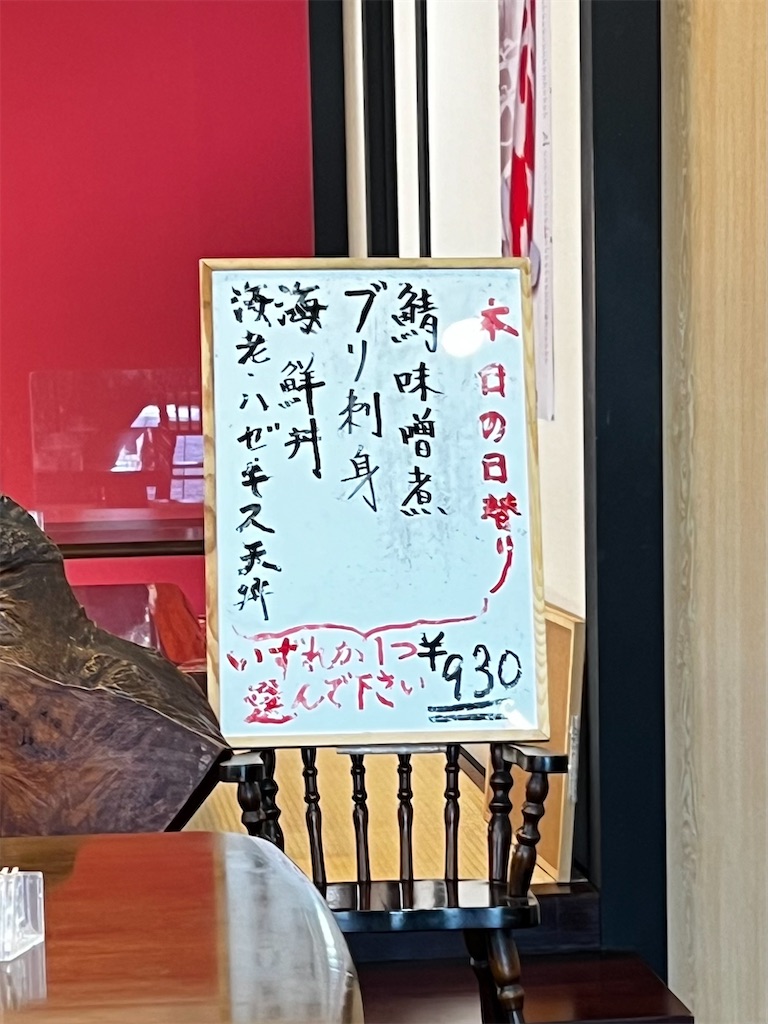 本日の日替り
鯖味噌煮
ブリ刺身
海鮮丼
海老・ハゼ・キス天
いずれか1つ
選んで下さい
¥930